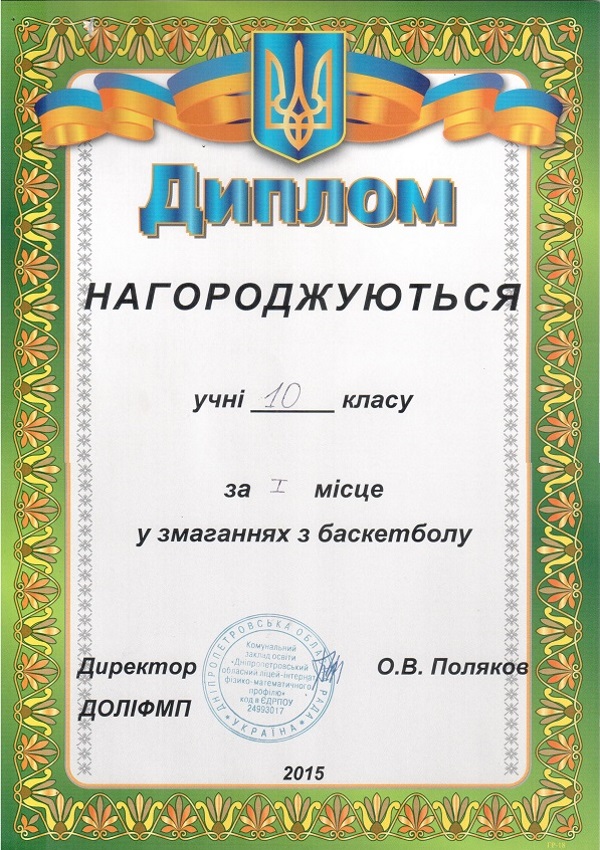 Диплом
НАГОРОДЖУЮТЬСЯ
учні 10 класу
за I місце
у змаганнях з баскетболу
Директор
ДОЛІФМП
О.В. Поляков
ДНІПРОПЕТРОВСЬКА ОБЛАСНА РАДА
Комунальний
заклад освіти
«Дніпропетровський
обласний ліцей-інтернат
фізико-математичного
профілю»
код в ЄДРПОУ
24993017
* УКРАЇНА *
2015
ГР-18